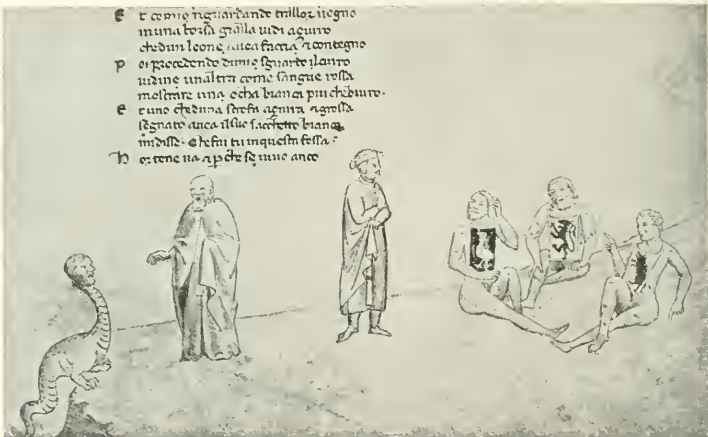 E t com io riguardando tra llor vegno
in una borsa gialla vidi açurro
che dun leone avea faccia 7 contegno
P oi procedendo di mio sguardo il curro
vidine unaltra come sangue rossa
mostrare una ocha bianca piu che burro.
E t uno che duna scrofa açurra 7 grossa
segnato avea il suo sacchetto bianco
mi disse. che fai tu in questa fossa.
h or tene va 7 perche se vivo anco